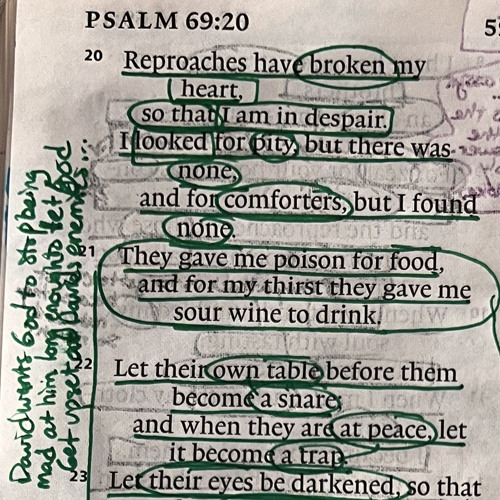 PSALM 69:20
20 Reproaches have broken my
heart,
so that I am in despair.
I looked for pity, but there was
none,
and for comforters, but I found
none.
21 They gave me poison for food,
and for my thirst they gave me
sour wine to drink.
22 Let their own table before them
become a snare;
and when they are at peace, let
it become a trap.
23 Let their eyes be darkened, so that
David wants God to stop being
mad at him long enough to let God
get upset at Davids enemies...